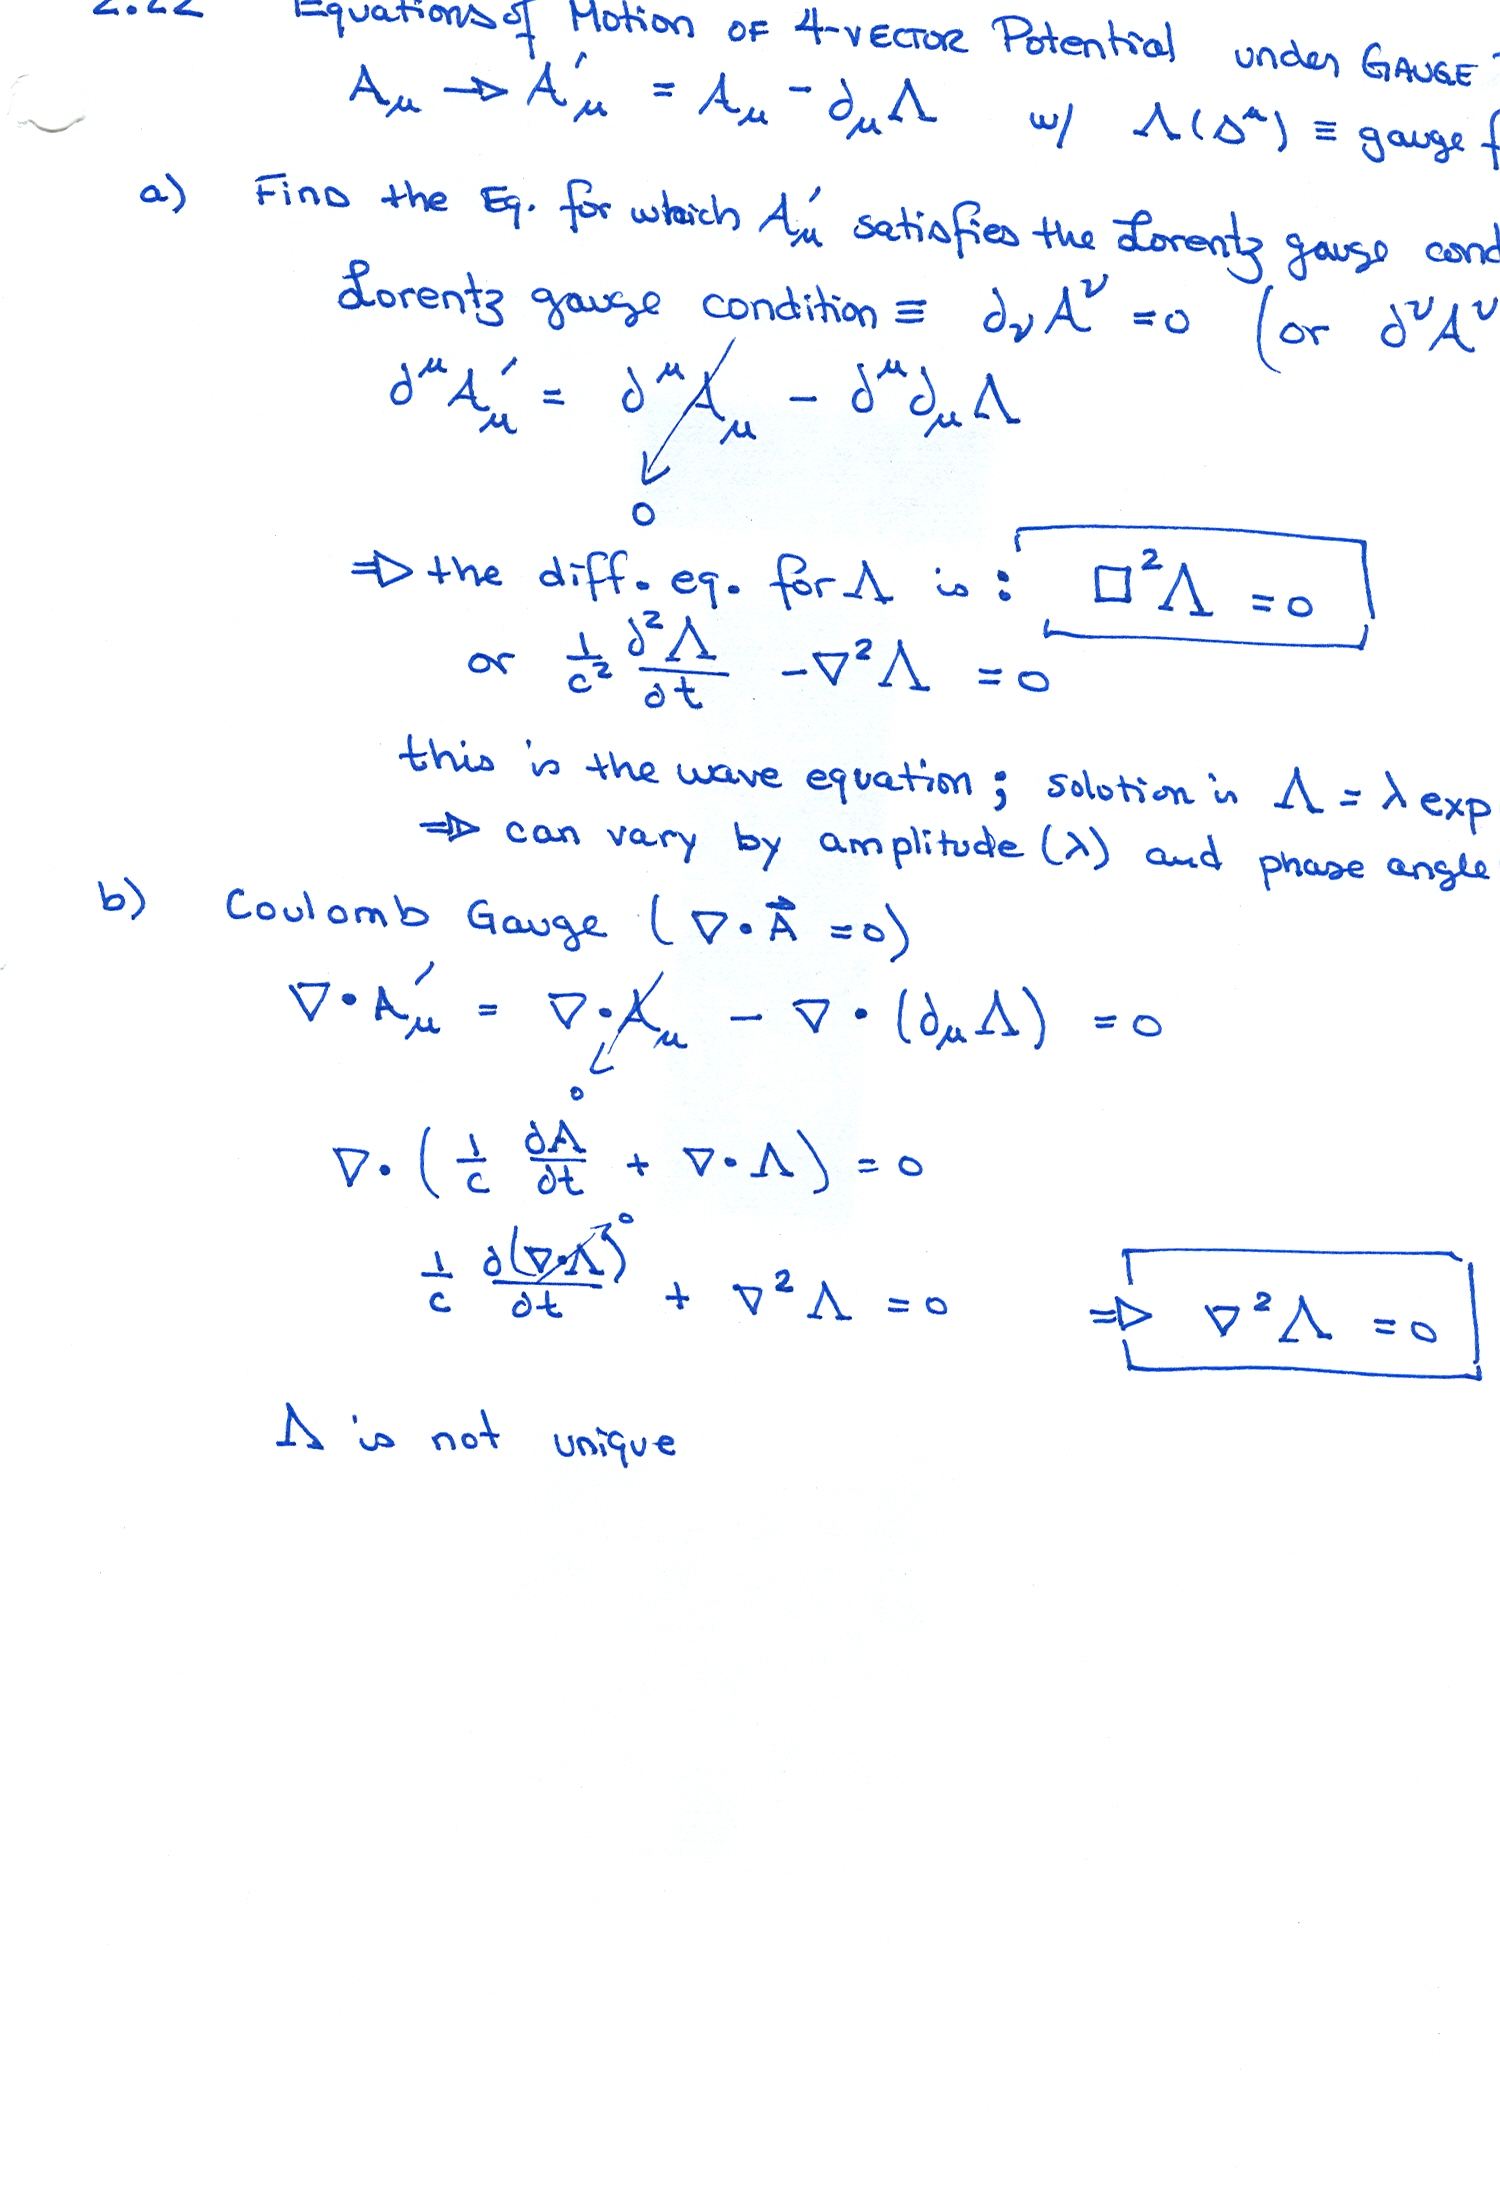 2.22 Equations of Motion OF 4-VECTOR Potential under GAUGE
Aμ → A′μ = Aμ - ∂μ Λ w/ Λ(Δ^μ) ≡ gauge f
a) Find the Eq. for which A′μ satisfies the Lorentz gauge cond
Lorentz gauge condition ≡ ∂ν A^ν = 0 (or ∂^ν A^ν
∂^μ A′μ = ∂^μ Aμ - ∂^μ ∂μ Λ
0
⇒ the diff. eq. for Λ is : □² Λ = 0
or 1/c² ∂²Λ/∂t - ∇²Λ = 0
this is the wave equation ; solution is Λ = λ exp
⇒ can vary by amplitude (λ) and phase angle
b) Coulomb Gauge (∇·A⃗ = 0)
∇·A′μ = ∇·Aμ - ∇·(∂μ Λ) = 0
0
∇·(1/c ∂Λ/∂t + ∇·Λ) = 0
1/c ∂(∇·Λ)/∂t 0 + ∇²Λ = 0 ⇒ ∇²Λ = 0
Λ is not unique